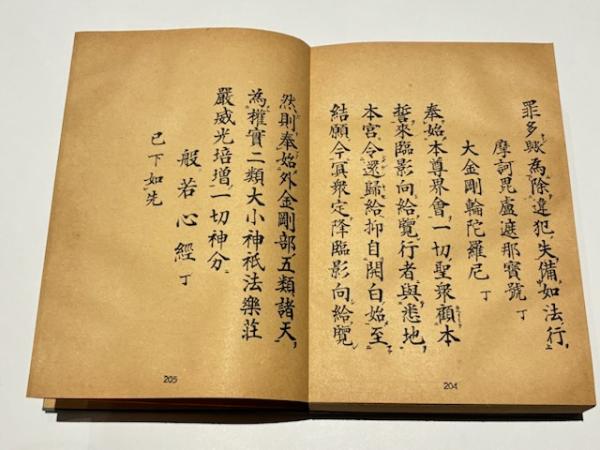 罪多歟為除違犯失備如法行
摩訶毘盧遮那寶號 丁
大金剛輪陀羅尼 丁
奉始本尊界會一切聖衆顧本
誓來臨影向給覽行者與悉地
本宮令還歸給抑自開白始至
結願今冥衆定降臨影向給覽
204
然則奉始外金剛部五類諸天
為權實二類大小神祇法樂莊
嚴威光培增一切神分
般若心經 丁
已下如先
205